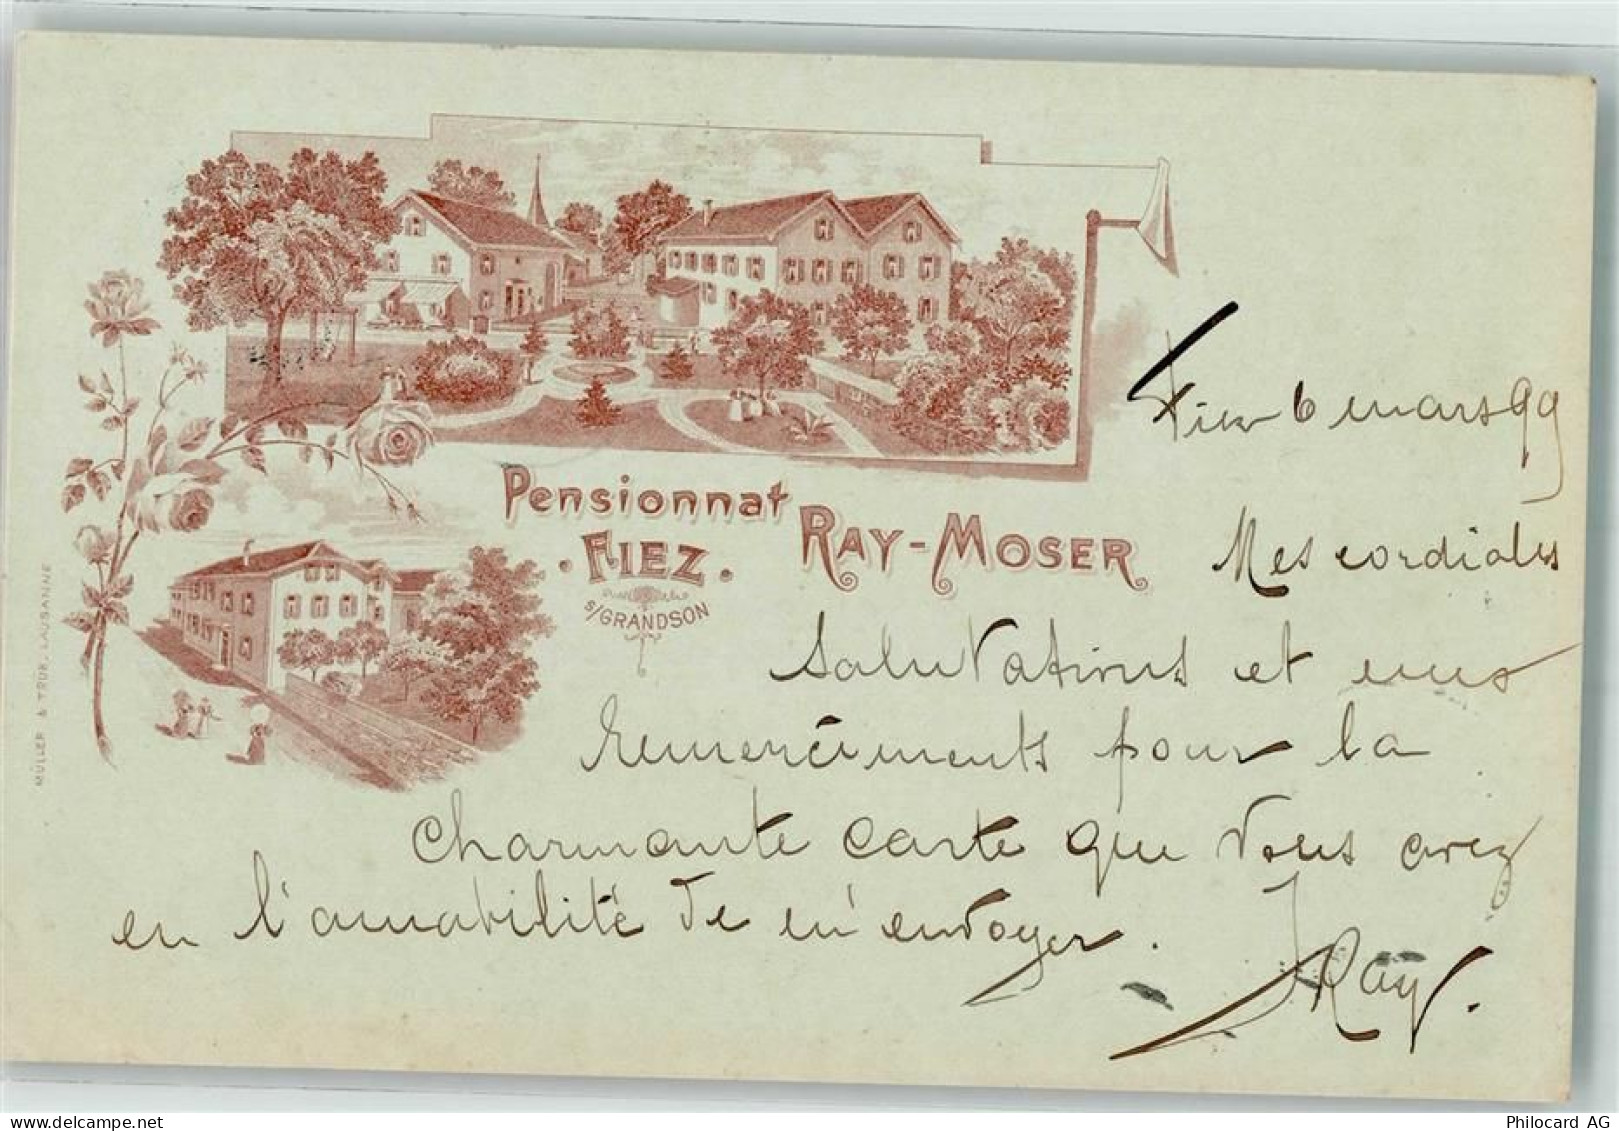 Pensionnat
RAY-MOSER
FIEZ.
s/GRANDSON
MÜLLER & TRÜB, LAUSANNE
Fiez 6 mars 99
Mes cordiales
salutations et mes
remerciements pour la
charmante carte que vous avez
eu l'amabilité de m'envoyer.
J Ray.
Philocard AG